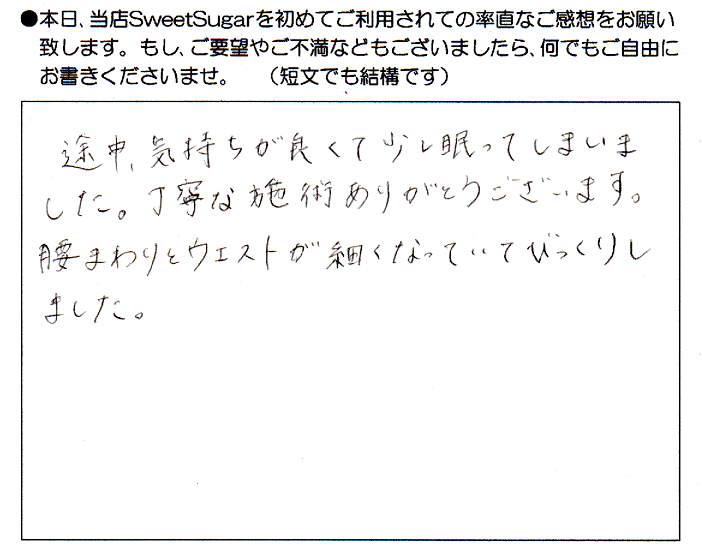 ●本日、当店SweetSugarを初めてご利用されての率直なご感想をお願い
致します。もし、ご要望やご不満などもございましたら、何でもご自由に
お書きくださいませ。　（短文でも結構です）
途中、気持ちが良くて少し眠ってしまいま
した。丁寧な施術ありがとうございます。
腰まわりとウエストが細くなっていてびっくりし
ました。